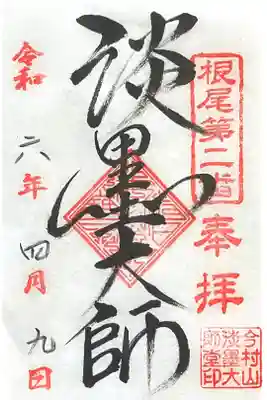 根尾第二番
奉拝
淡墨大師
令和六年四月九日
今村山
淡墨大
師堂印